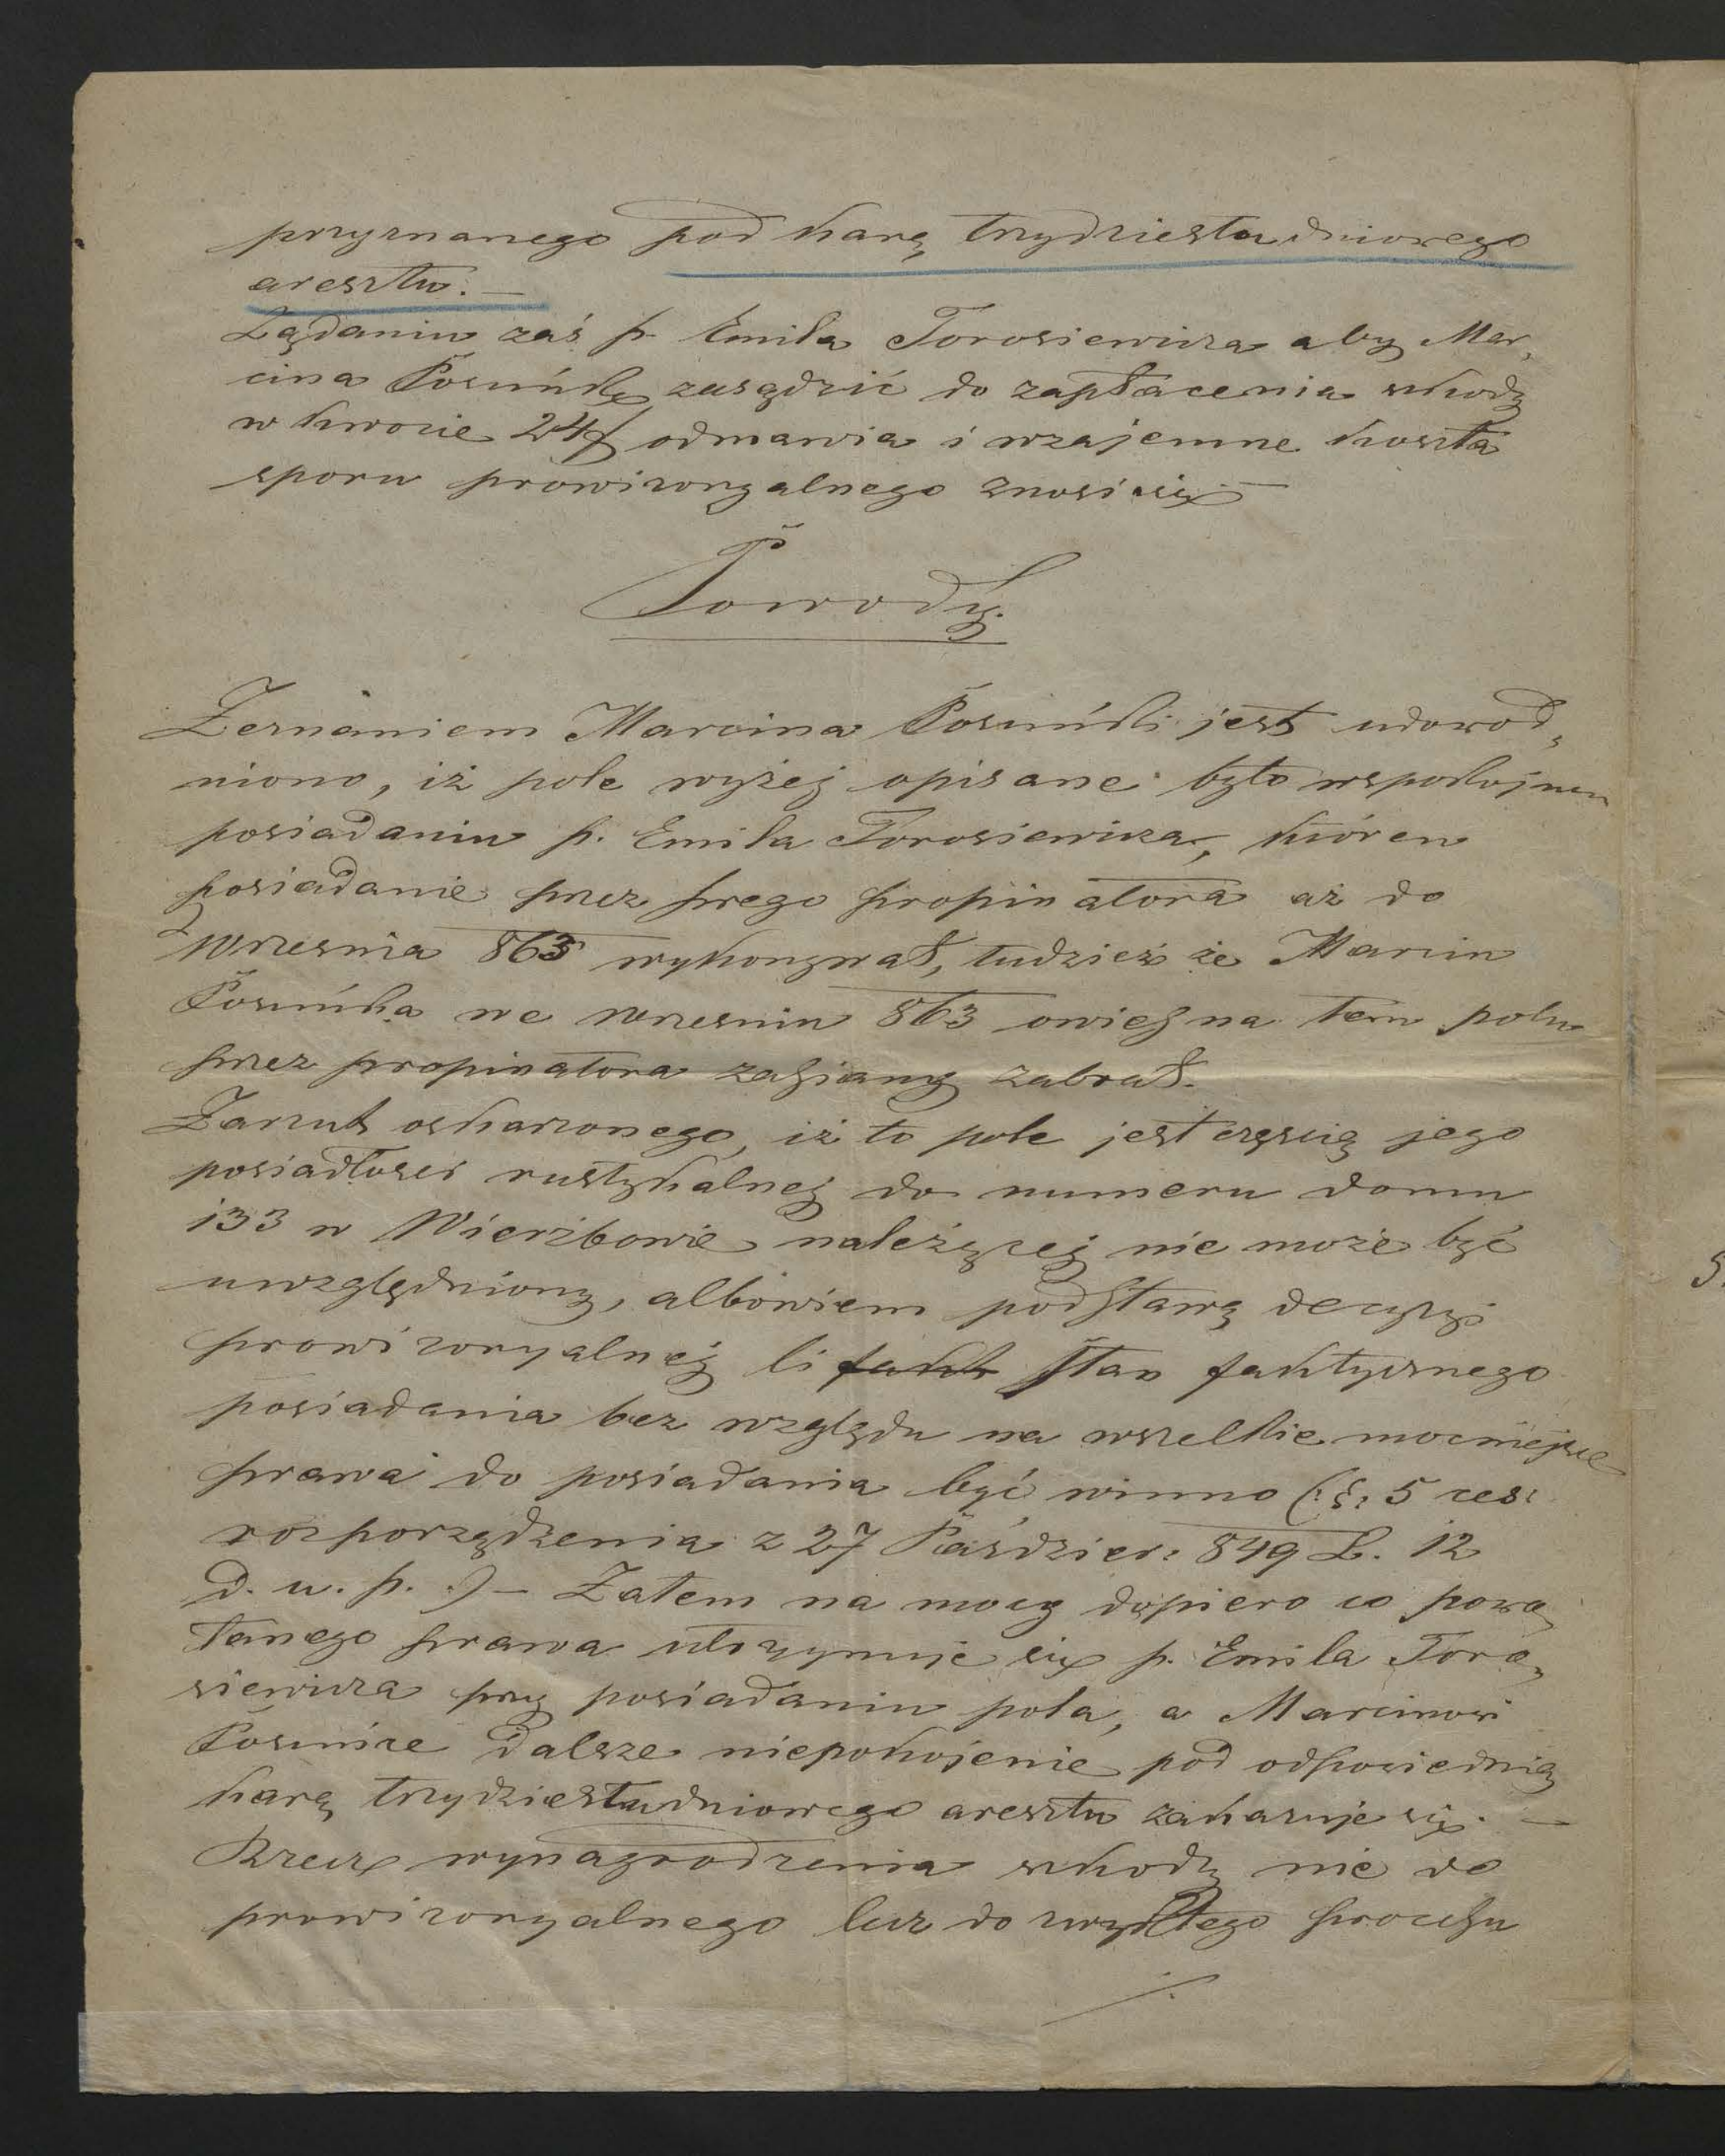 przyznanego pod karą trzydziesta dniowego
aresztu. —
Żądaniu zaś p. Emila Torosiewicza aby Mar„
cina zasądzić do zapłacenia szkody
w kwocie 24f odmawia i wzajemne koszta
sporu prowizoryalnego znosi się —
Powody.
Zeznaniem Marcina jest udowod„
niono, iż pole wyżej opisane było wspokojnem
posiadaniu p. Emila Torosiewicza, któren
posiadanie przez swego propinatora aż do
Wrzesnia 863 wykonywał, tudzież że Marcin
we Wrzesniu 863 owies na tem polu
przez propinatora zasiany zabrał.
Zarzut oskarzonego, iż to pole jest częscią jego
posiadłosci rustykalnej do numeru domu
133 w Wierzbowie należącej nie może być
uwzględniony, albowiem podstawą decyzyi
prowizoryalnej li fakt stan faktycznego
posiadania bez względu na wszelkie mocniejsze
prawa do posiadania być winno (: §: 5 ces:
rozporządzenia z 27 Paździer: 849 L. 12
D. u. p. :) — Zatem na mocy dopiero co powo„
łanego prawa utrzymuje się p. Emila Toro„
siewicza przy posiadaniu pola, a Marcinowi
dalsze niepokojenie pod odpowiednią
karą trzydziesta dniowego aresztu zakazuje się. —
Rzecz wynagrodzenia szkody nie do
prowizoryalnego lecz do zwykłego procesu
./.